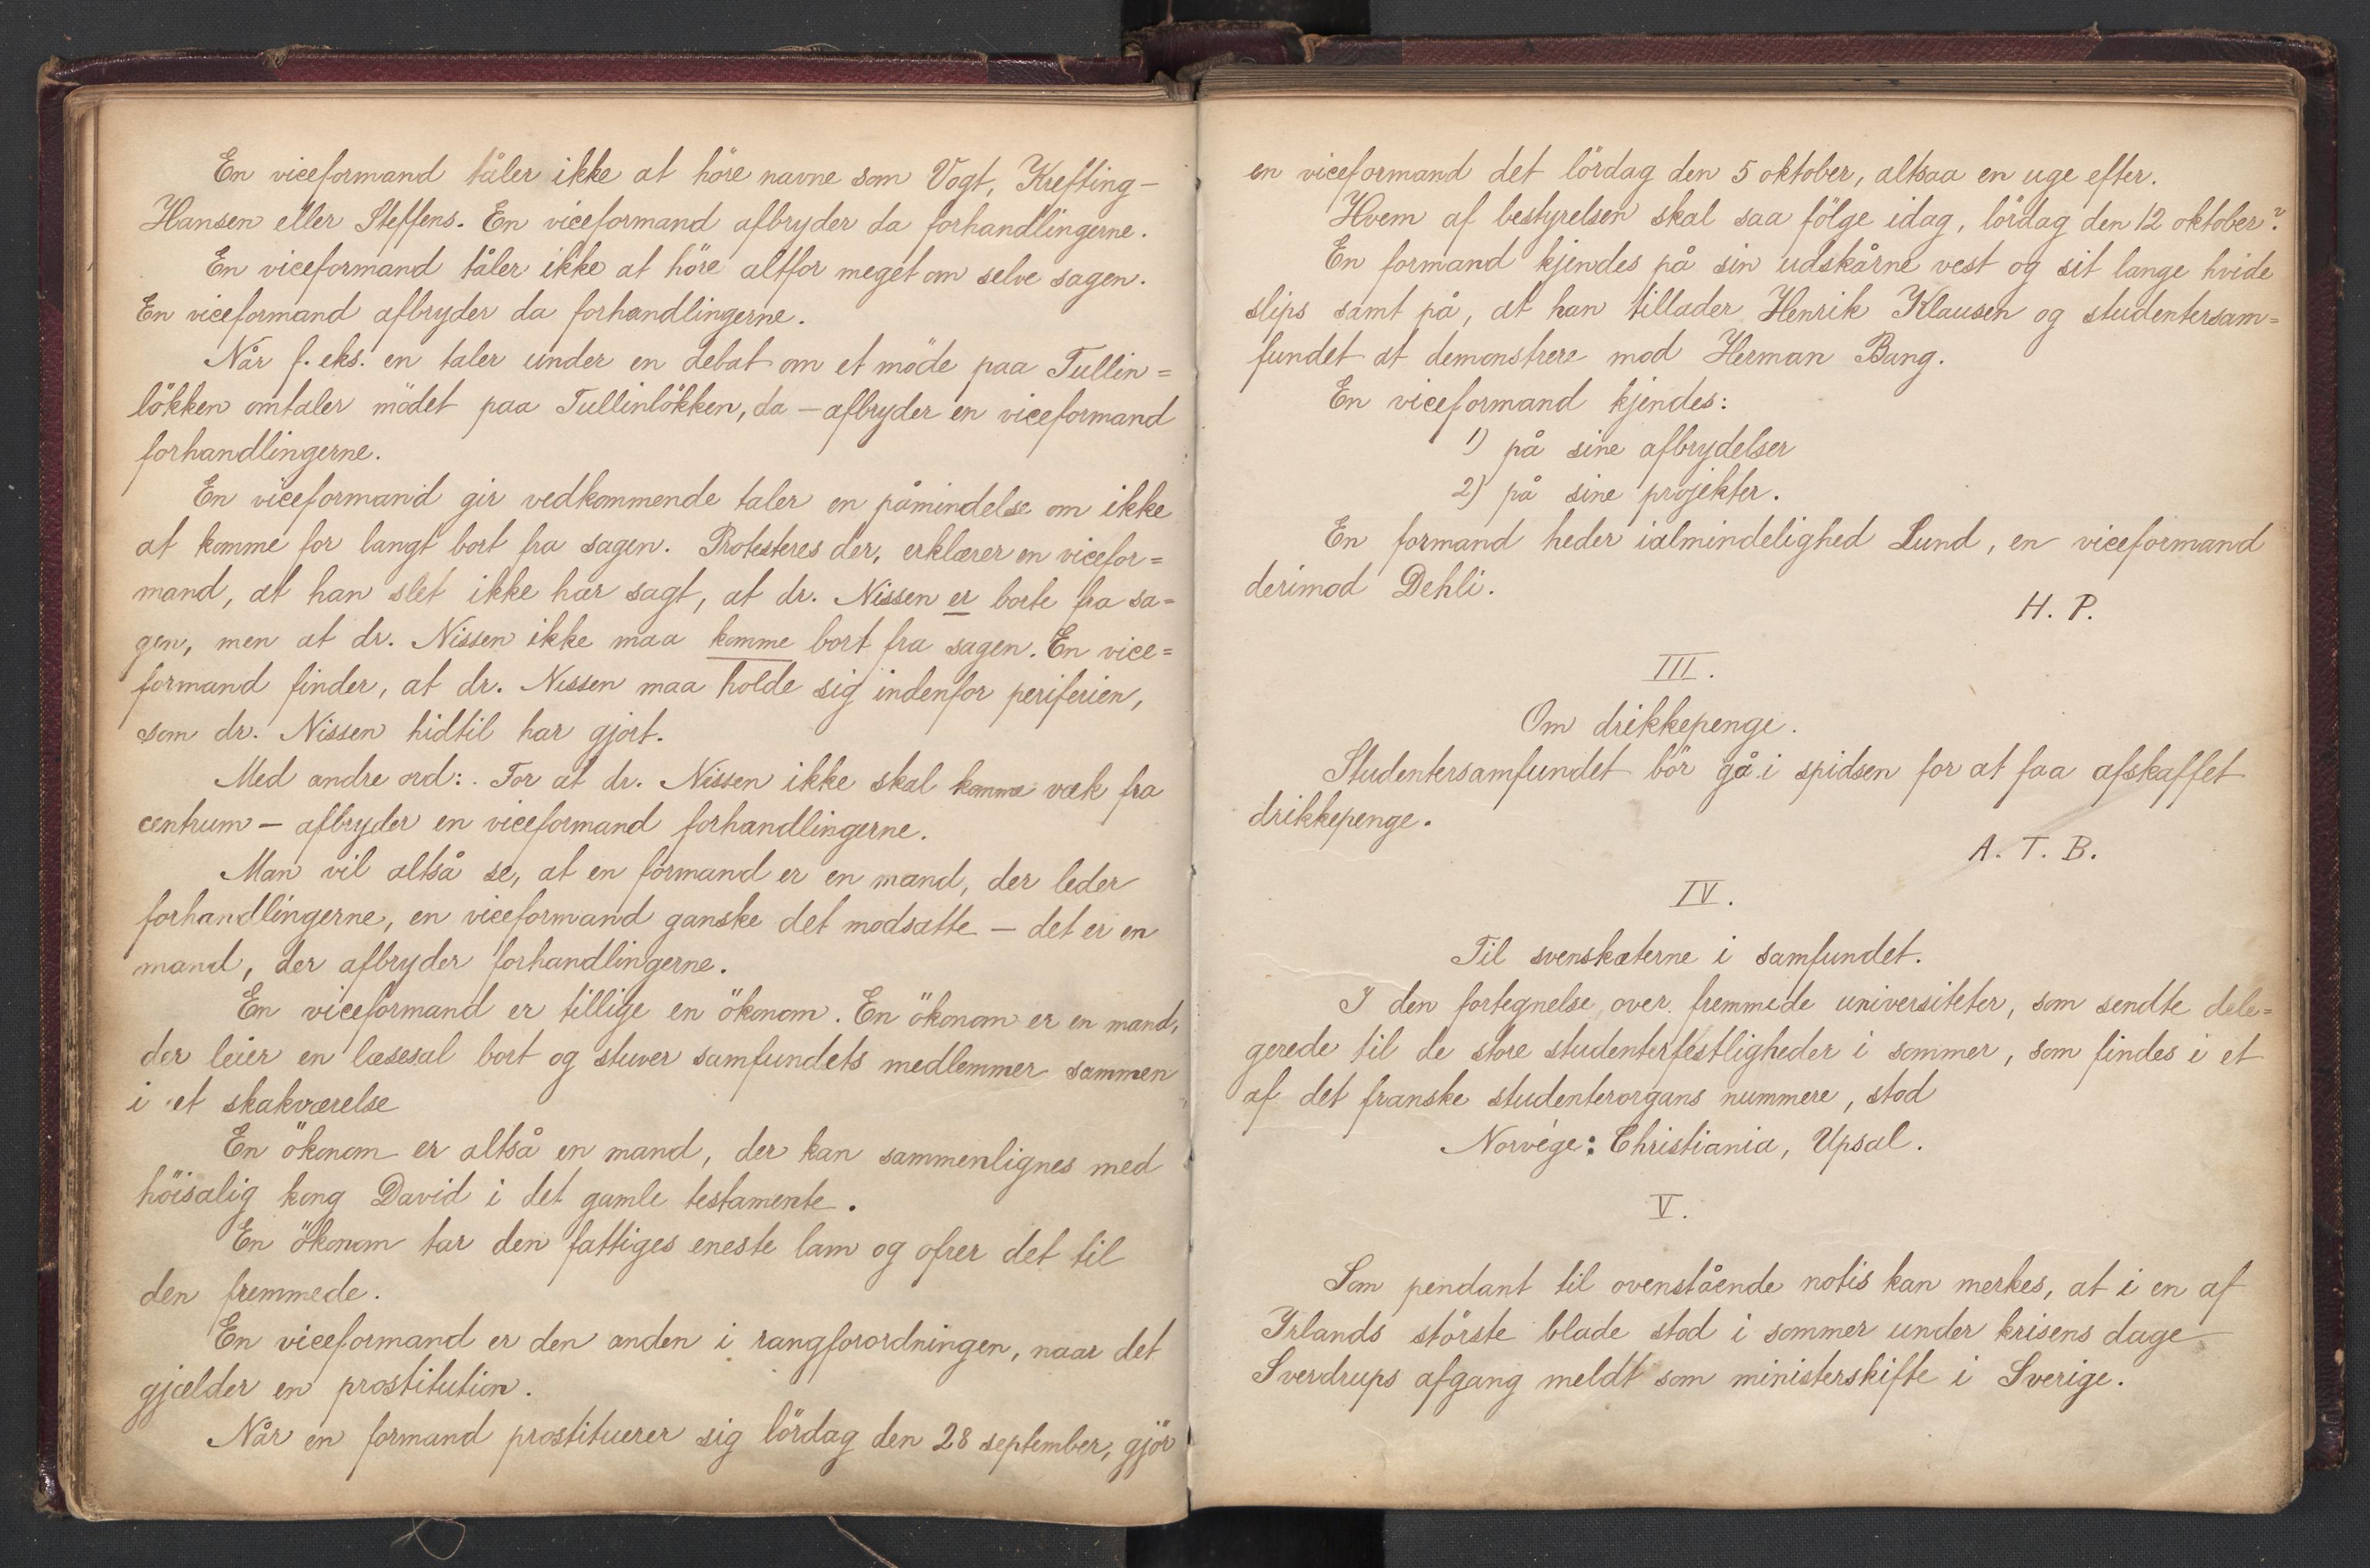 En viceformand tåler ikke at höre navne som Vogt, Krefting-
Hansen eller Steffens. En viceformand afbryder da forhandlingerne.
En viceformand tåler ikke at höre altfor meget om selve sagen.
En viceformand afbryder da forhandlingerne.
Når f. eks. en taler under en debat om et möde paa Tullin=
lökken omtaler mödet paa Tullinlökken, da – afbryder en viceformand
forhandlingerne.
En viceformand gir vedkommende taler en påmindelse om ikke
at komme for langt bort fra sagen. Protesteres der, erklærer en vicefor=
mand, at han slet ikke har sagt, at dr. Nissen er borte fra sa=
gen, men at dr. Nissen ikke maa komme bort fra sagen. En vice=
formand finder, at dr. Nissen maa holde sig indenfor periferien,
som dr. Nissen hidtil har gjort.
Med andre ord: For at dr. Nissen ikke skal komme væk fra
centrum – afbryder en viceformand forhandlingerne.
Man vil altså se, at en formand er en mand, der leder
forhandlingerne, en viceformand ganske det modsatte – det er en
mand, der afbryder forhandlingerne.
En viceformand er tillige en ökonom. En ökonom er en mand,
der leier en læsesal bort og stuver samfundets medlemmer sammen
i et skakværelse
En ökonom er altså en mand, der kan sammenlignes med
höisalig kong David i det gamle testamente.
En ökonom tar den fattiges eneste lam og ofrer det til
den fremmede.
En viceformand er den anden i rangforordningen, naar det
gjælder en prostitution.
Når en formand prostituerer sig lördag den 28 september, gjör
en viceformand det lördag den 5 oktober, altsaa en uge efter.
Hvem af bestyrelsen skal saa fölge idag, lördag den 12 oktober?
En formand kjendes på sin udskårne vest og sit lange hvide
slips samt på, at han tillader Henrik Klausen og studentersam=
fundet at demonstrere mod Herman Bang.
En viceformand kjendes:
1) på sine afbrydelser
2) på sine projekter.
En formand heder ialmindelighed Lund, en viceformand
derimod Dehli.
H. P.
III.
Om drikkepenge.
Studentersamfundet bör gå i spidsen for at faa afskaffet
drikkepenge.
A. T. B.
IV.
Til svenskæterne i samfundet.
I den fortegnelse over fremmede universiteter, som sendte dele=
gerede til de store studenterfestligheder i sommer, som findes i et
af det franske studenterorgans nummere, stod
Norvége: Christiania, Upsal.
V.
Som pendant til ovenstående notis kan merkes, at i en af
Irlands störste blade stod i sommer under krisens dage
Sverdrups afgang meldt som ministerskifte i Sverige.